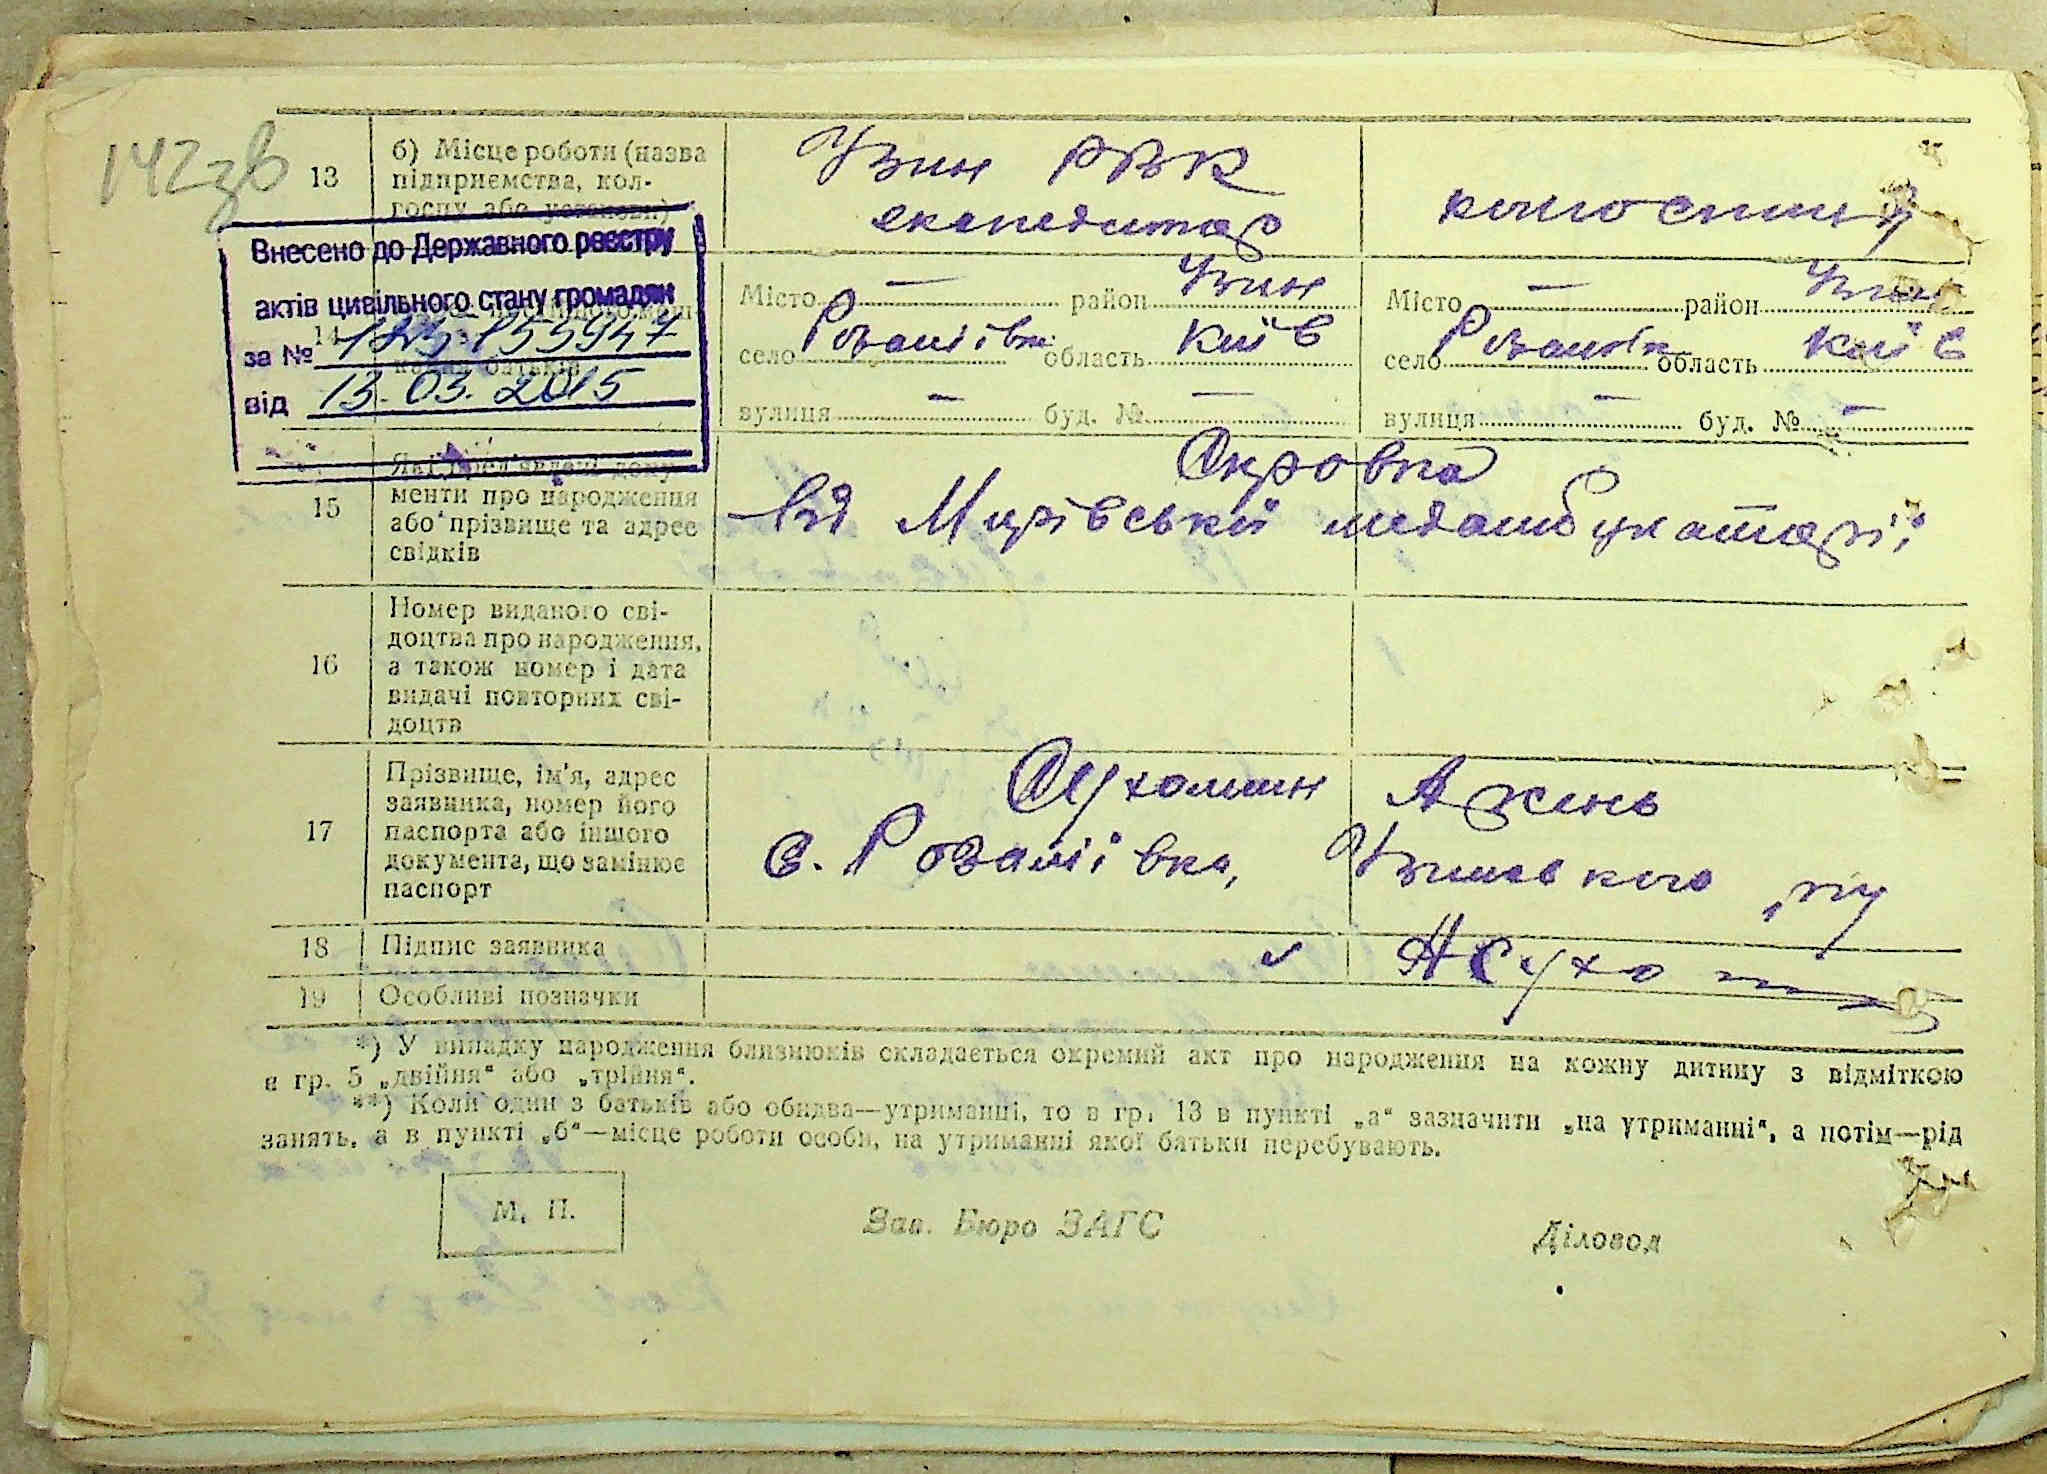 142зв
13
б) Місце роботи (назва
підприємства, кол-
госпу або установи)
Узин РВК
експедитор
Внесено до Державного реєстру
актів цивільного стану громадян
за №
155947
від 13.03.2015
14
Місто — район Узин
село Розаліївк область Київ
вулиця — буд. № —
Місто — район Узин
село область Київ
вулиця — буд. № —
15
Які пред'явлені доку-
менти про народження
або прізвище та адрес
свідків
Від
16
Номер виданого сві-
доцтва про народження,
а також номер і дата
видачі повторних сві-
доцтв
17
Прізвище, ім'я, адрес
заявника, номер його
паспорта або іншого
документа, що замінює
паспорт
Сухомлин
с. Розаліївка, Узинського р-ну
18
Підпис заявника
19
Особливі позначки
*) У випадку народження близнюків складається окремий акт про народження на кожну дитину з відміткою
в гр. 5 „двійня“ або „трійня“.
**) Коли один з батьків або обидва—утриманці, то в гр. 13 в пункті „а“ зазначити „на утриманні“, а потім—рід
занять, а в пункті „б“—місце роботи особи, на утриманні якої батьки перебувають.
М. П.
Зав. Бюро ЗАГС
Діловод